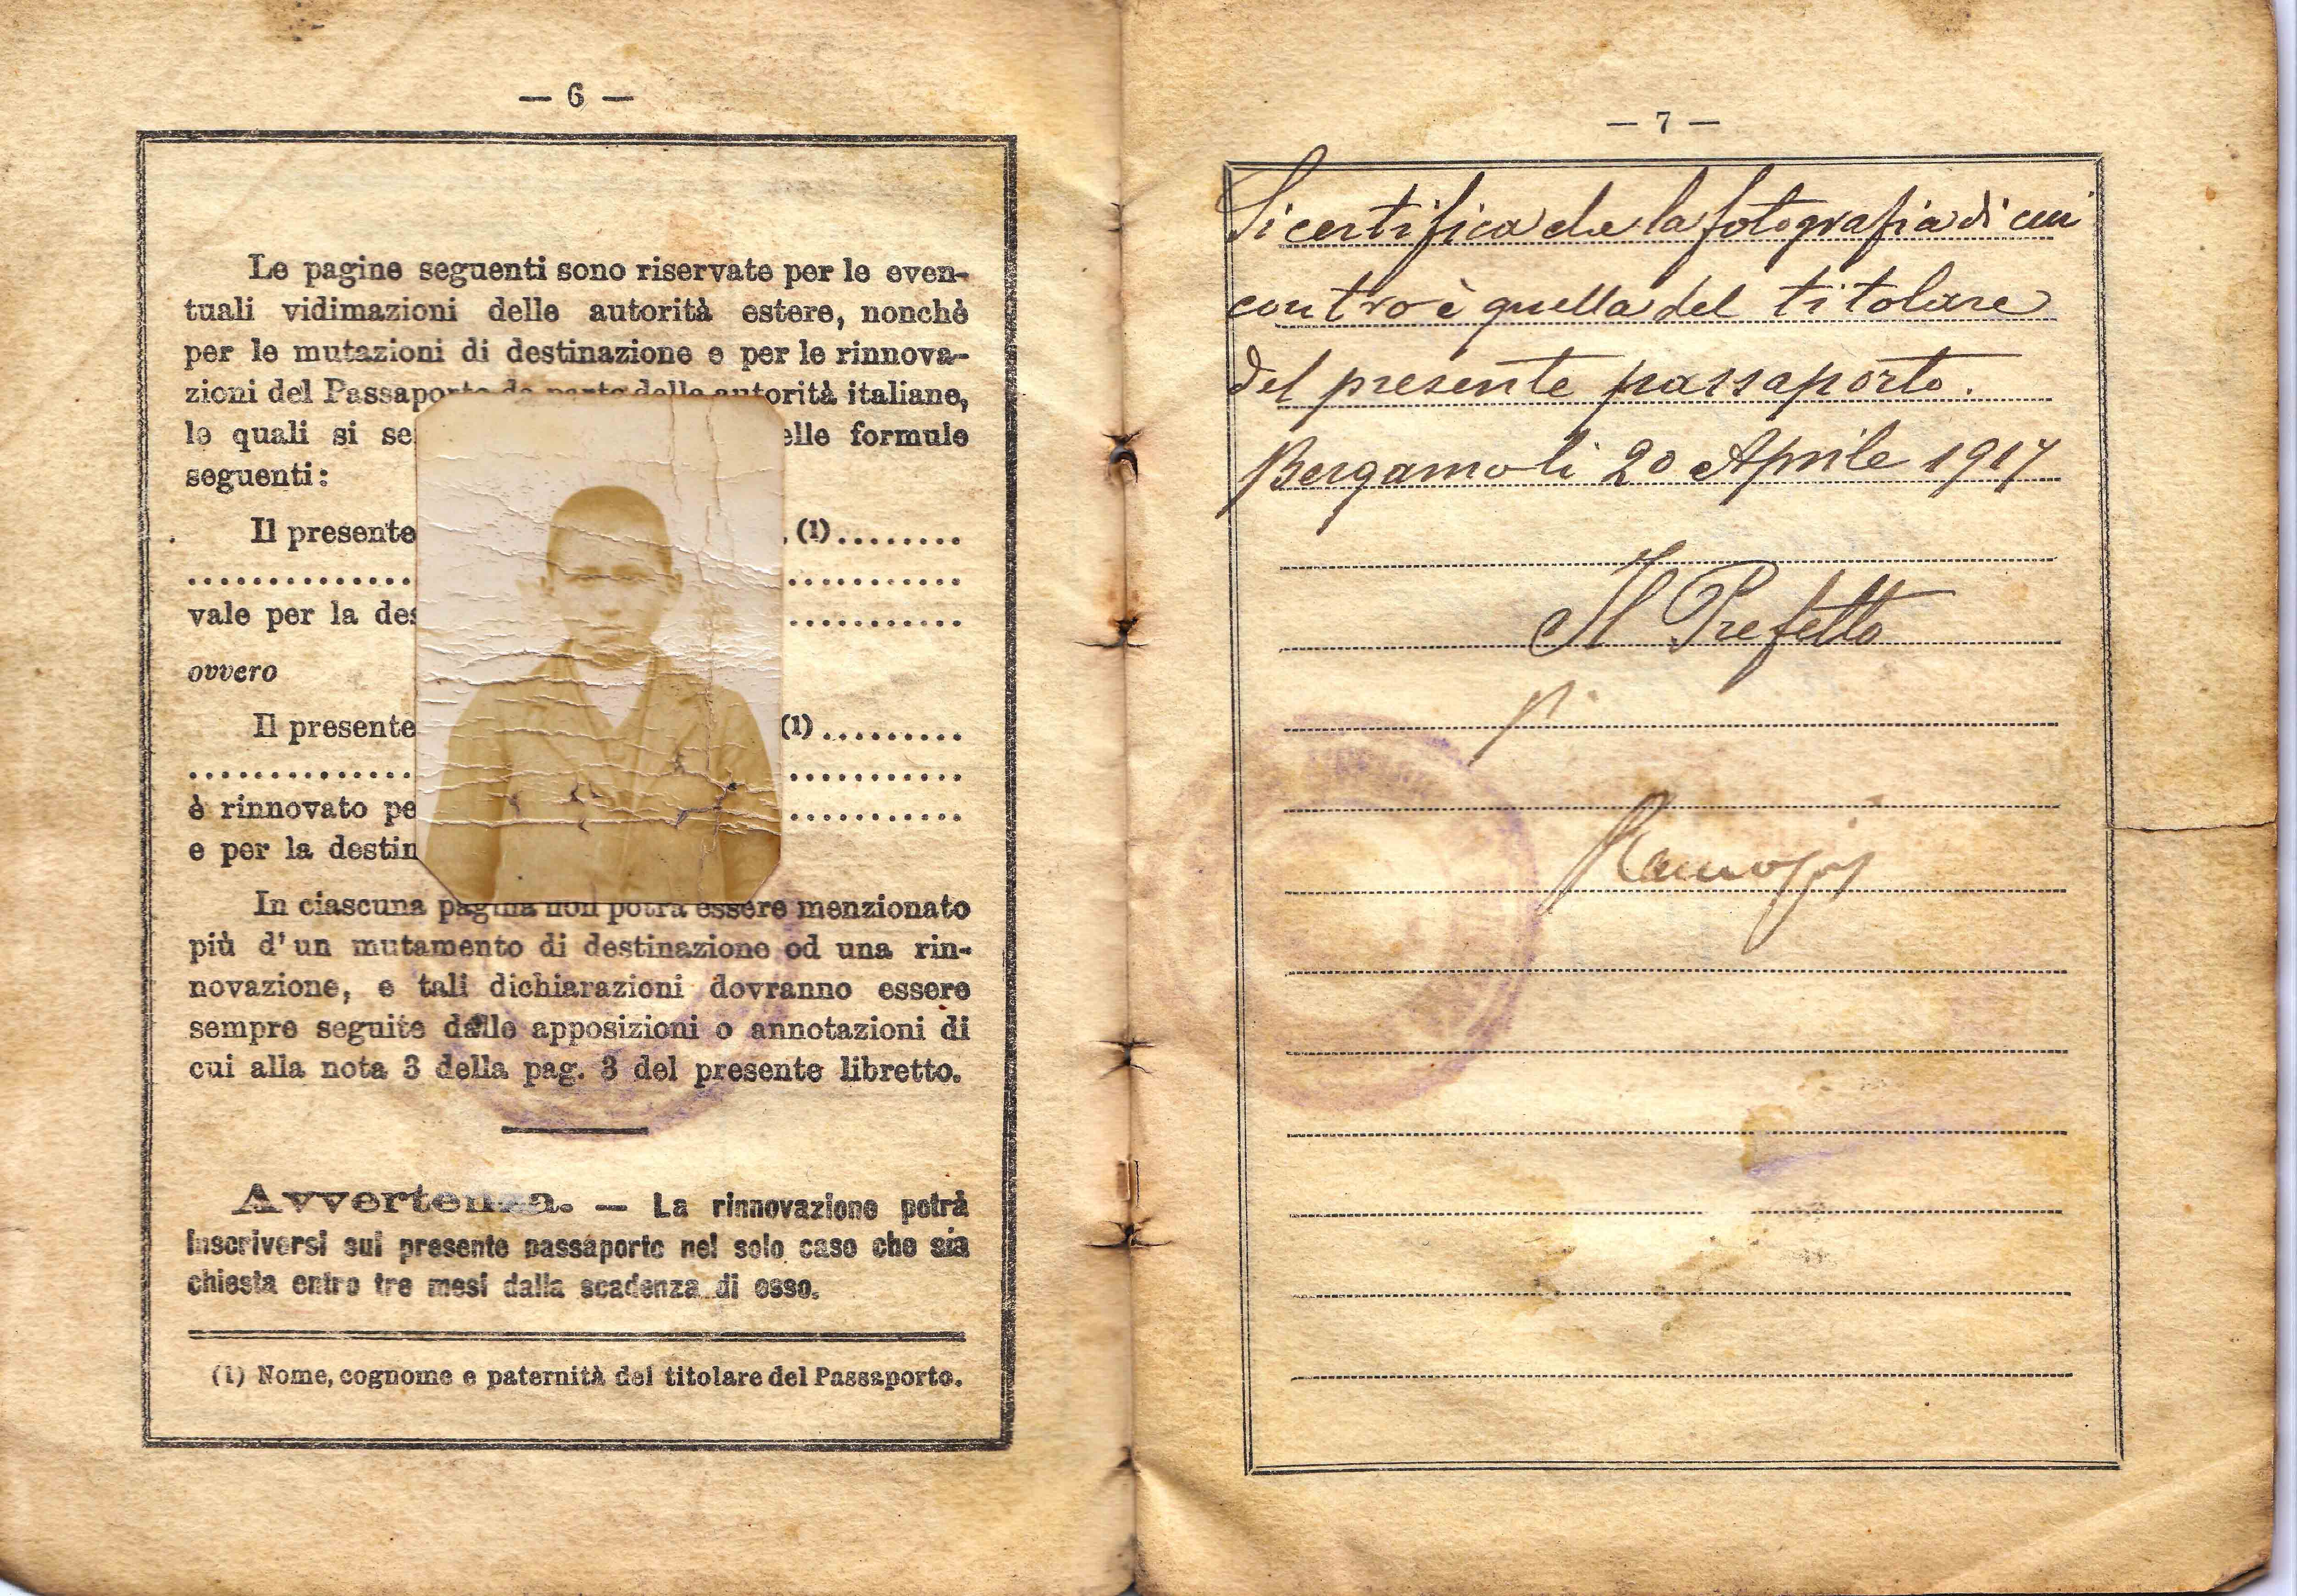 — 6 —
Le pagine seguenti sono riservate per le even-
tuali vidimazioni delle autorità estere, nonchè
per le mutazioni di destinazione e per le rinnova-
zioni del Passaporto da parte delle autorità italiane,
le quali si se elle formule
seguenti:
Il presente , (1)........
..............  ...........
vale per la des ...........
ovvero
Il presente (1).........
..............  ...........
è rinnovato pe ...........
e per la destin
In ciascuna pagina non potrà essere menzionato
più d'un mutamento di destinazione od una rin-
novazione, e tali dichiarazioni dovranno essere
sempre seguite dalle apposizioni o annotazioni di
cui alla nota 3 della pag. 3 del presente libretto.
Avvertenza. — La rinnovazione potrà
inscriversi sul presente passaporto nel solo caso che sia
chiesta entro tre mesi dalla scadenza di esso.
(1) Nome, cognome e paternità del titolare del Passaporto.
— 7 —
Si certifica che la fotografia di cui
contro è quella del titolare
del presente passaporto.
Bergamo li 20 Aprile 1917
Il Prefetto
p.